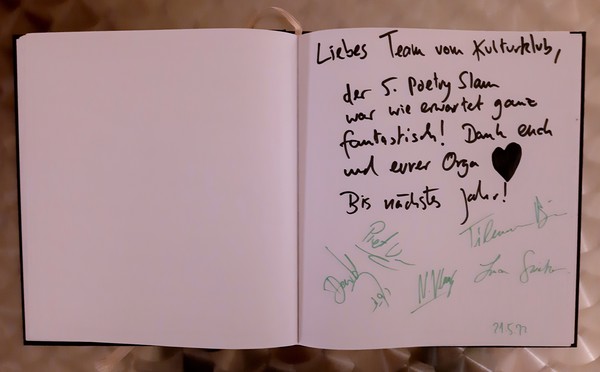 Liebes Team vom Kulturklub,
der 5. Poetry Slam
war wie erwartet ganz
fantastisch! Dank euch
und eurer Orga ♥
Bis nächstes Jahr!